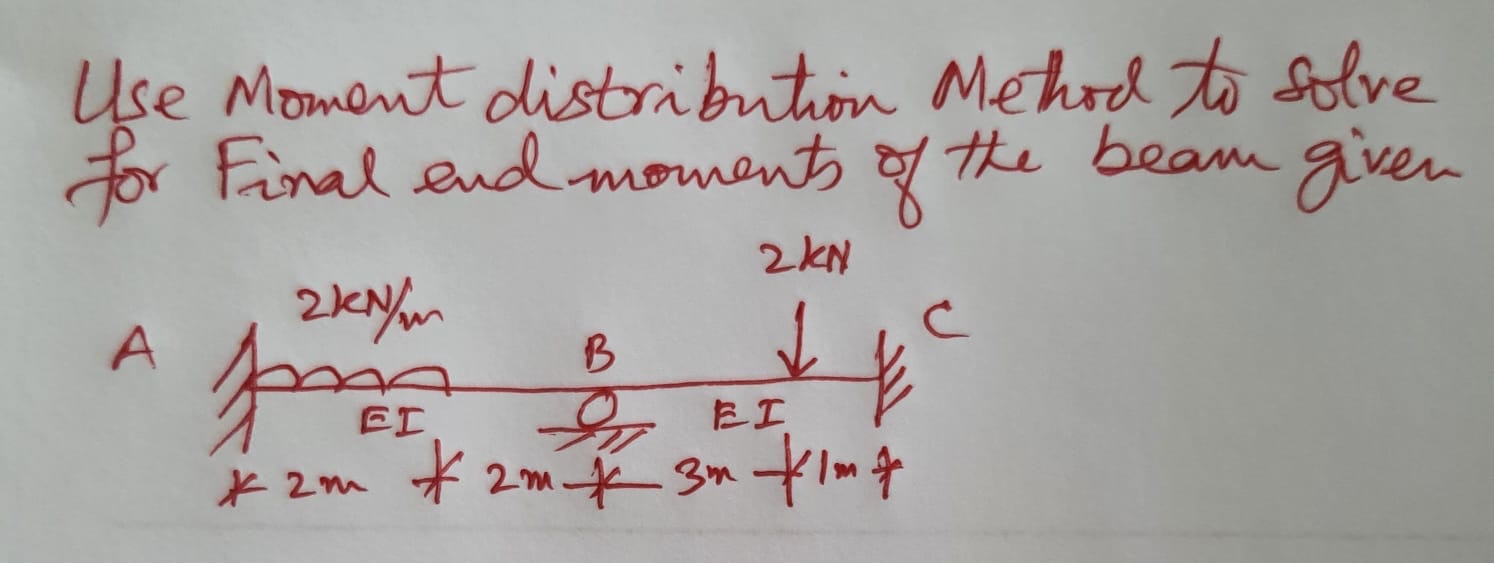 Use Moment distribution Method to solve
for Final end moments of the beam given
2 kN
2 kN/m
A B C
EI EI
2m 2m 3m 1m